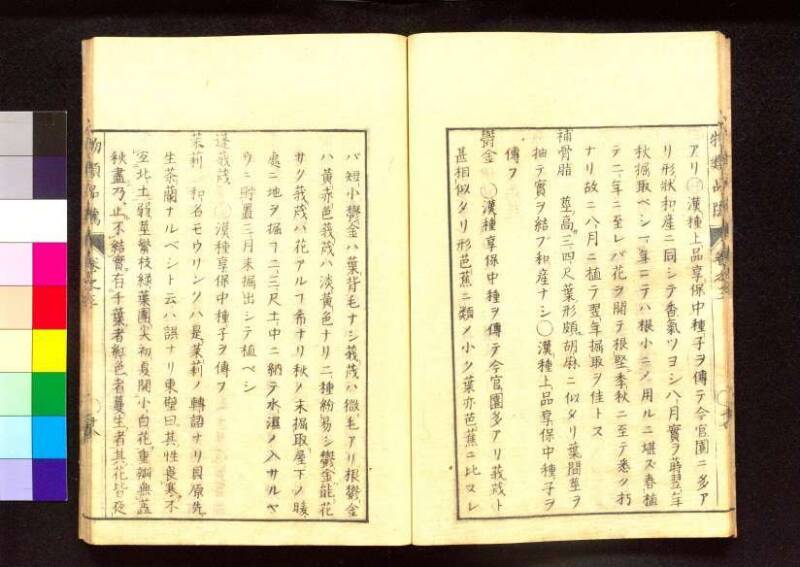 アリ○漢種上品享保中種子ヲ傳テ今官園ニ多ア
リ形狀和産ニ同シテ香氣ツヨシ八月實ヲ蒔翌年
秋掘取ベシ一年ニテハ根小ニメ用ルニ堪ズ春植
テ二年ニ至レバ花ヲ開テ根堅季秋ニ至テ悉ク朽
ナリ故ニ八月ニ植テ翌年掘取ヲ佳トス
補骨脂 莖高三四尺葉形頗胡麻ニ似タリ葉間莖ヲ
抽テ實ヲ結フ和産ナシ○漢種上品享保中種子ヲ
傳フ
鬱金 ○漢種享保中種ヲ傳テ今官園多アリ莪蒁ト
甚相似タリ形芭蕉ニ類メ小ク葉亦芭蕉ニ比スレ
物類品隲 卷之三
バ短小鬱金ハ葉背毛ナシ莪蒁ハ微毛アリ根鬱金
ハ黄赤色莪蒁ハ淡黄色ナリ二種紛易シ鬱金能花
サク莪蒁ハ花アルフ希ナリ秋ノ末掘取屋下ノ暖
處ニ地ヲ掘フ二三尺土中ニ納テ水濕ノ入サルヤ
ウニ貯置三月末掘出シテ植ベシ
蓬莪蒁 ○漢種享保中種子ヲ傳フ
茉莉 和名モウリンクハ是茉莉ノ轉語ナリ貝原先
生茶蘭ナルベシト云ハ誤ナリ東璧曰其性畏寒不
宜北土弱莖繁枝綠葉團尖初夏開小白花重瓣無蕊
秋盡乃止不結實有千葉者紅色者蔓生者其花皆夜
物類品隲 卷之三